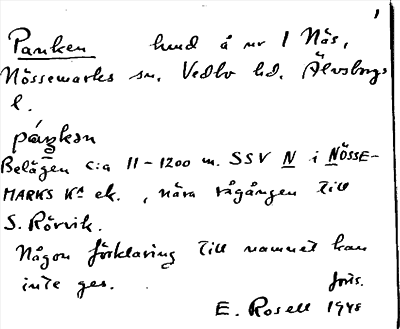 1
Panken hmd å nr 1 Näs,
Nössemarks sn. Vedbo hd. Älvsborgs
l.
páŋkən
Belägen c:a 11-1200 m. SSV N i NÖSSE-
MARKS Ka ek., nära rågången till
S. Rörvik.
Någon förklaring till namnet kan
inte ges.
E. Rosell 1948